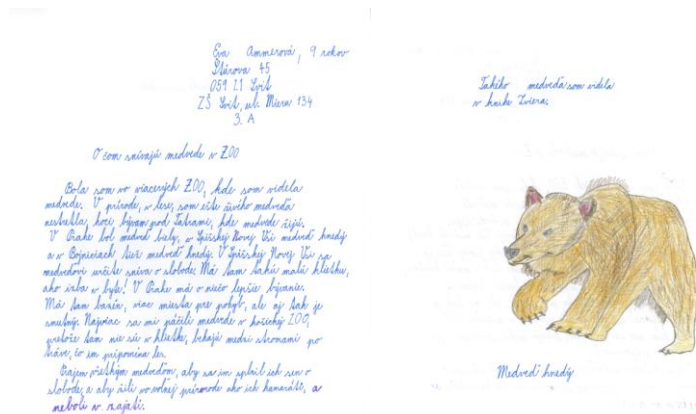 Eva Ammerová, 9 rokov
Štúrova 45
059 21 Svit
ZŠ Svit, ul. Mieru 134
3. A
O čom snívajú medvede v ZOO
Bola som vo viacerých ZOO, kde som videla
medvede. V prírode, v lese, som ešte živého medveďa
nestretla, hoci bývam pod Tatrami, kde medvede žijú.
V Prahe bol medveď biely, v Spišskej Novej Vsi medveď hnedý
a v Bojniciach tiež medveď hnedý. V Spišskej Novej Vsi sa
medveďovi určite sníva o slobode. Má tam takú malú klietku,
ako izba v byte! V Prahe má o niečo lepšie bývanie.
Má tam bazén, viac miesta pre pohyb, ale aj tak je
smutný. Najviac sa mi páčili medvede v košickej ZOO,
pretože tam nie sú v klietke, behajú medzi stromami po
tráve, čo im pripomína les.
Prajem všetkým medveďom, aby sa im splnil ich sen o
slobode, a aby žili vo voľnej prírode ako ich kamaráti, a
neboli v zajatí.
Takého medveďa som videla
v knihe Zviera,
Medveď hnedý